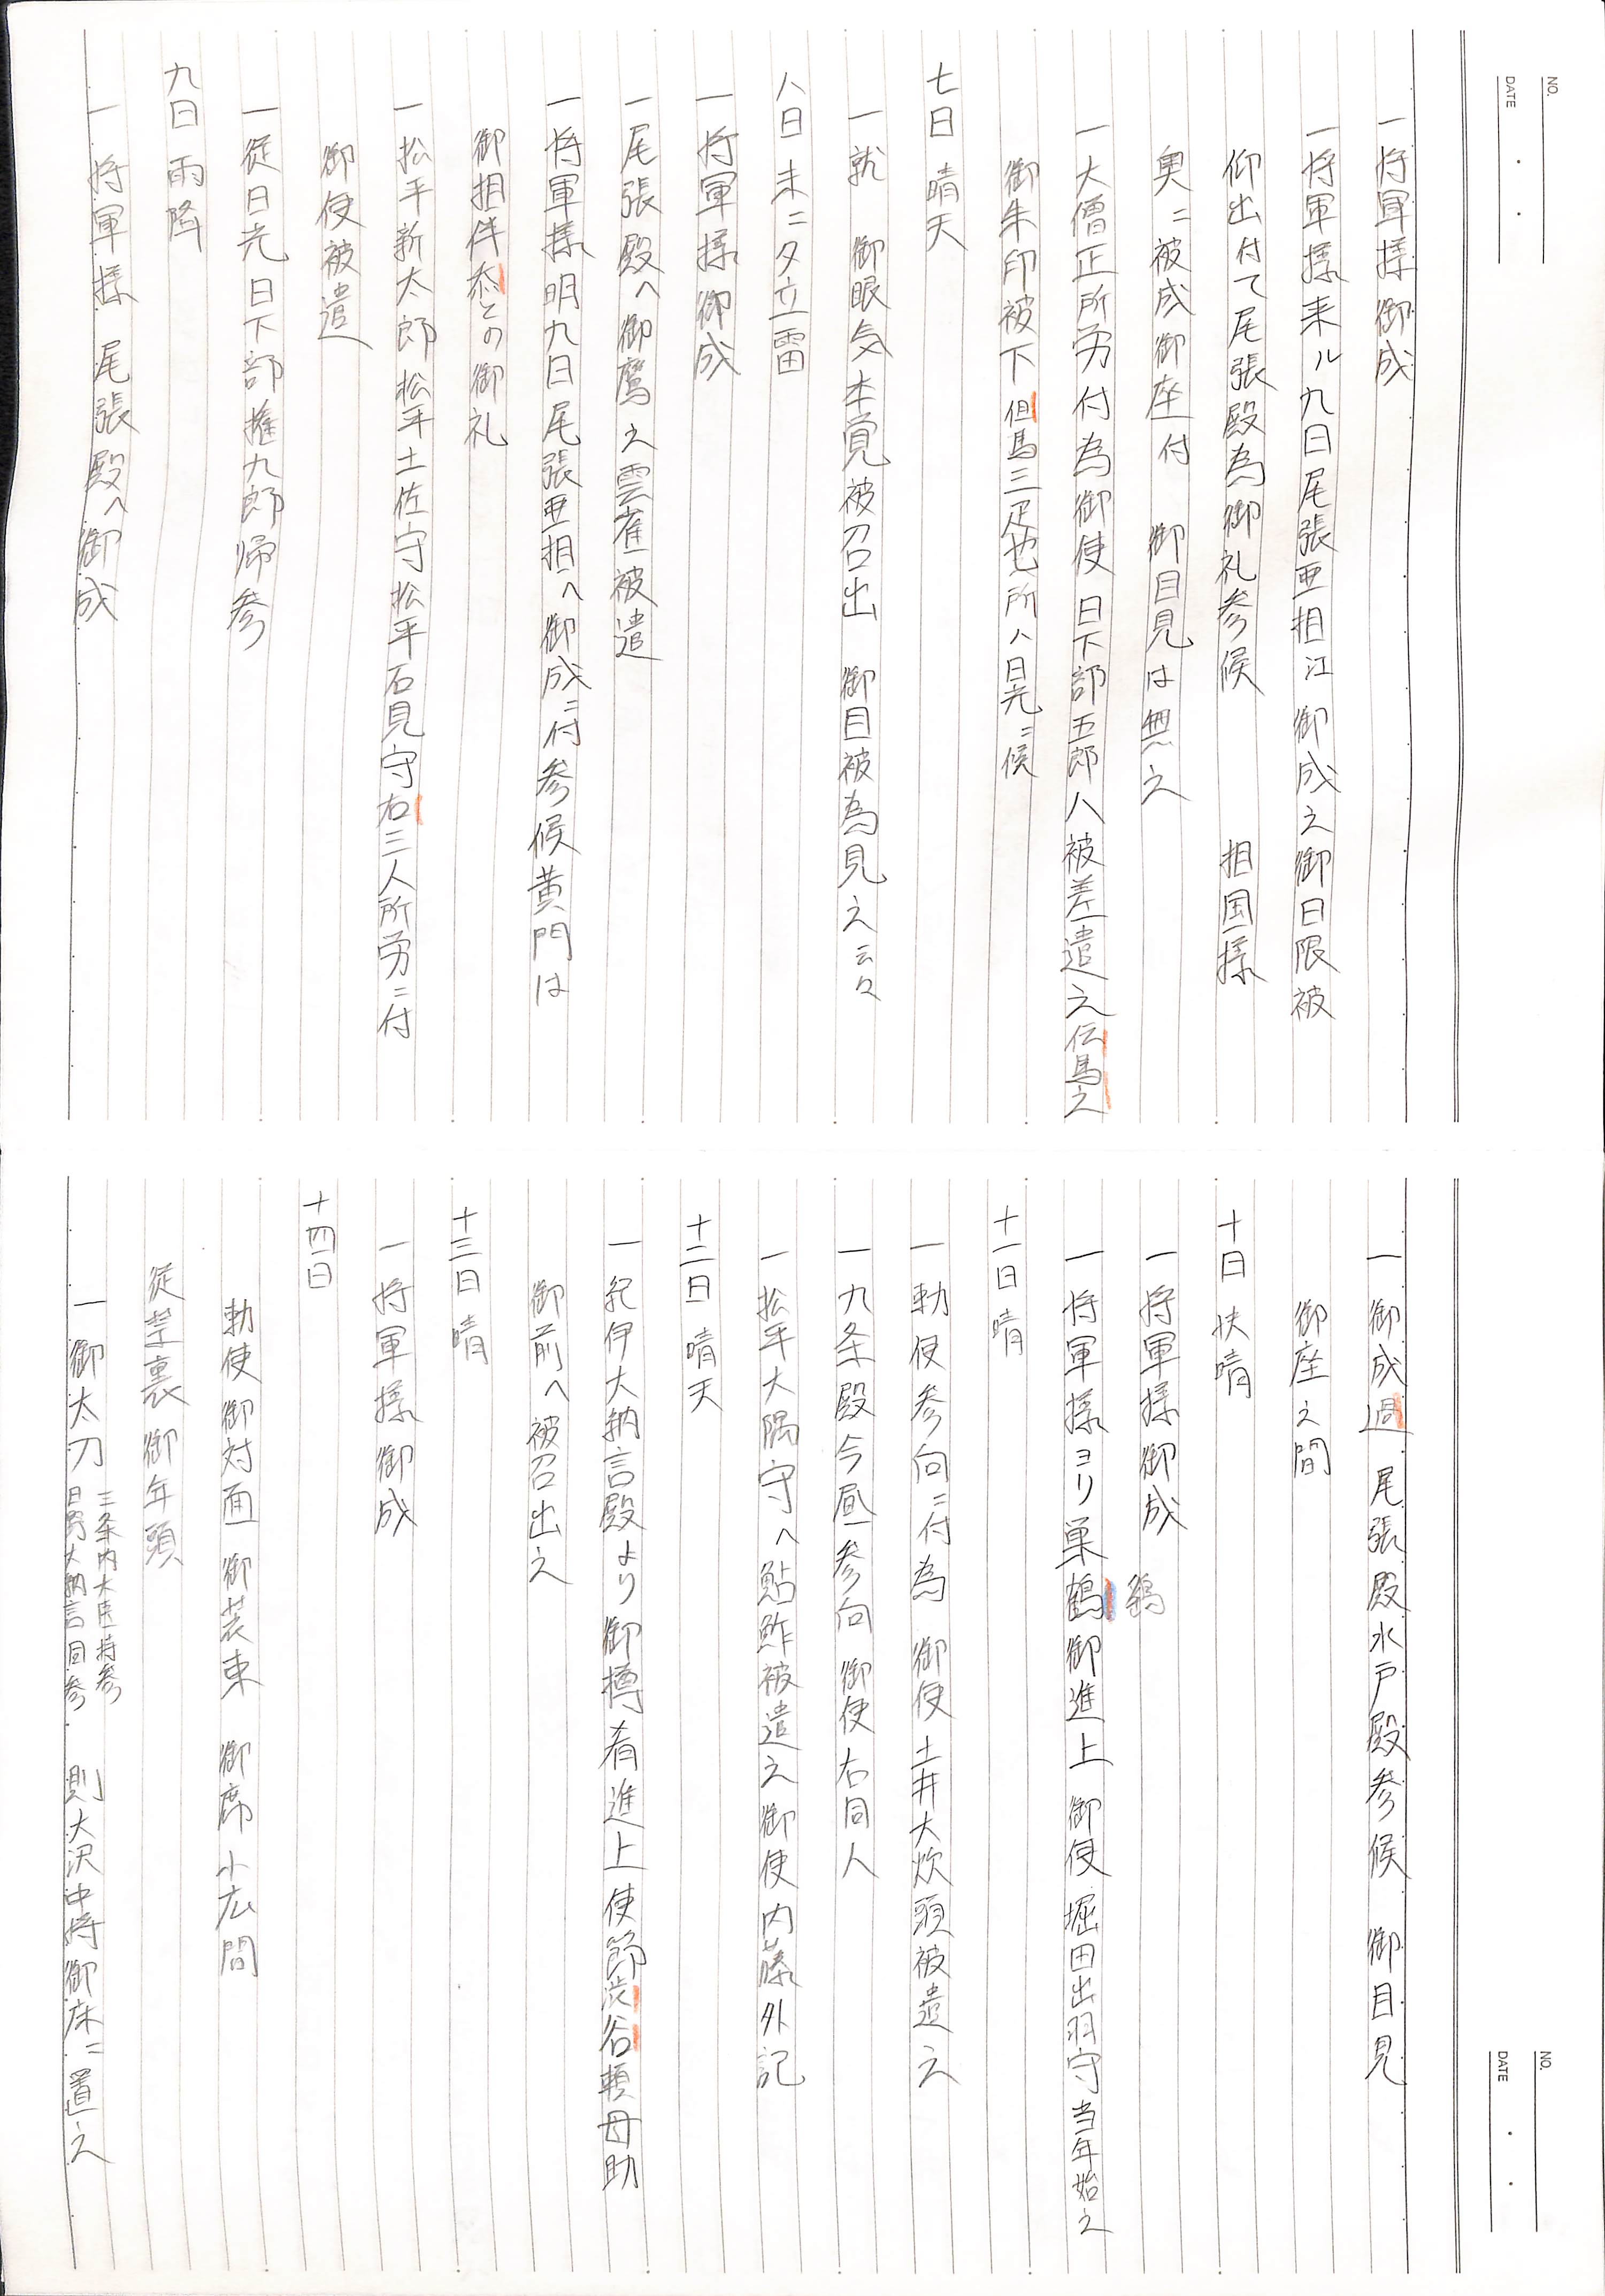 NO.
DATE
一将軍様御成
一将軍様来ル九日尾張亜相江御成之御日限被
仰出付て尾張殿為御礼参候 相国様
奥ニ被成御座付 御目見は無之
一大僧正所労付為御使日下部五郎八被差遣之伝馬之
御朱印被下但馬三疋也所ハ日光ニ候
七日 晴天
一就 御眼気本覚被召出 御目被為見之云々
八日 未ニ夕立雷
一将軍様御成
一尾張殿へ御鷹之雲雀被遣
一将軍様明九日尾張亜相へ御成ニ付参候黄門は
御相伴忝との御礼
一松平新太郎松平土佐守松平石見守右三人所労ニ付
御使被遣
一従日光日下部権九郎帰参
九日 雨降
一将軍様 尾張殿へ御成
NO.
DATE
一御成過 尾張殿水戸殿参候 御目見
御座之間
十日 快晴
一将軍様御成
鶴
一将軍様ヨリ巣鶴御進上 御使 堀田出羽守当年始之
十一日 晴
一勅使参向ニ付為 御使土井大炊頭被遣之
一九条殿今昼参向 御使右同人
一松平大隅守へ鮎鮓被遣之御使内藤外記
十二日 晴天
一紀伊大納言殿より御樽肴進上使節渋谷頼母助
御前へ被召出之
十三日 晴
一将軍様御成
十四日
勅使御対面 御装束 御席 小広間
従禁裏御年頭
一御太刀 三条内大臣持参 日野大納言同参 則大沢中将御床ニ置之